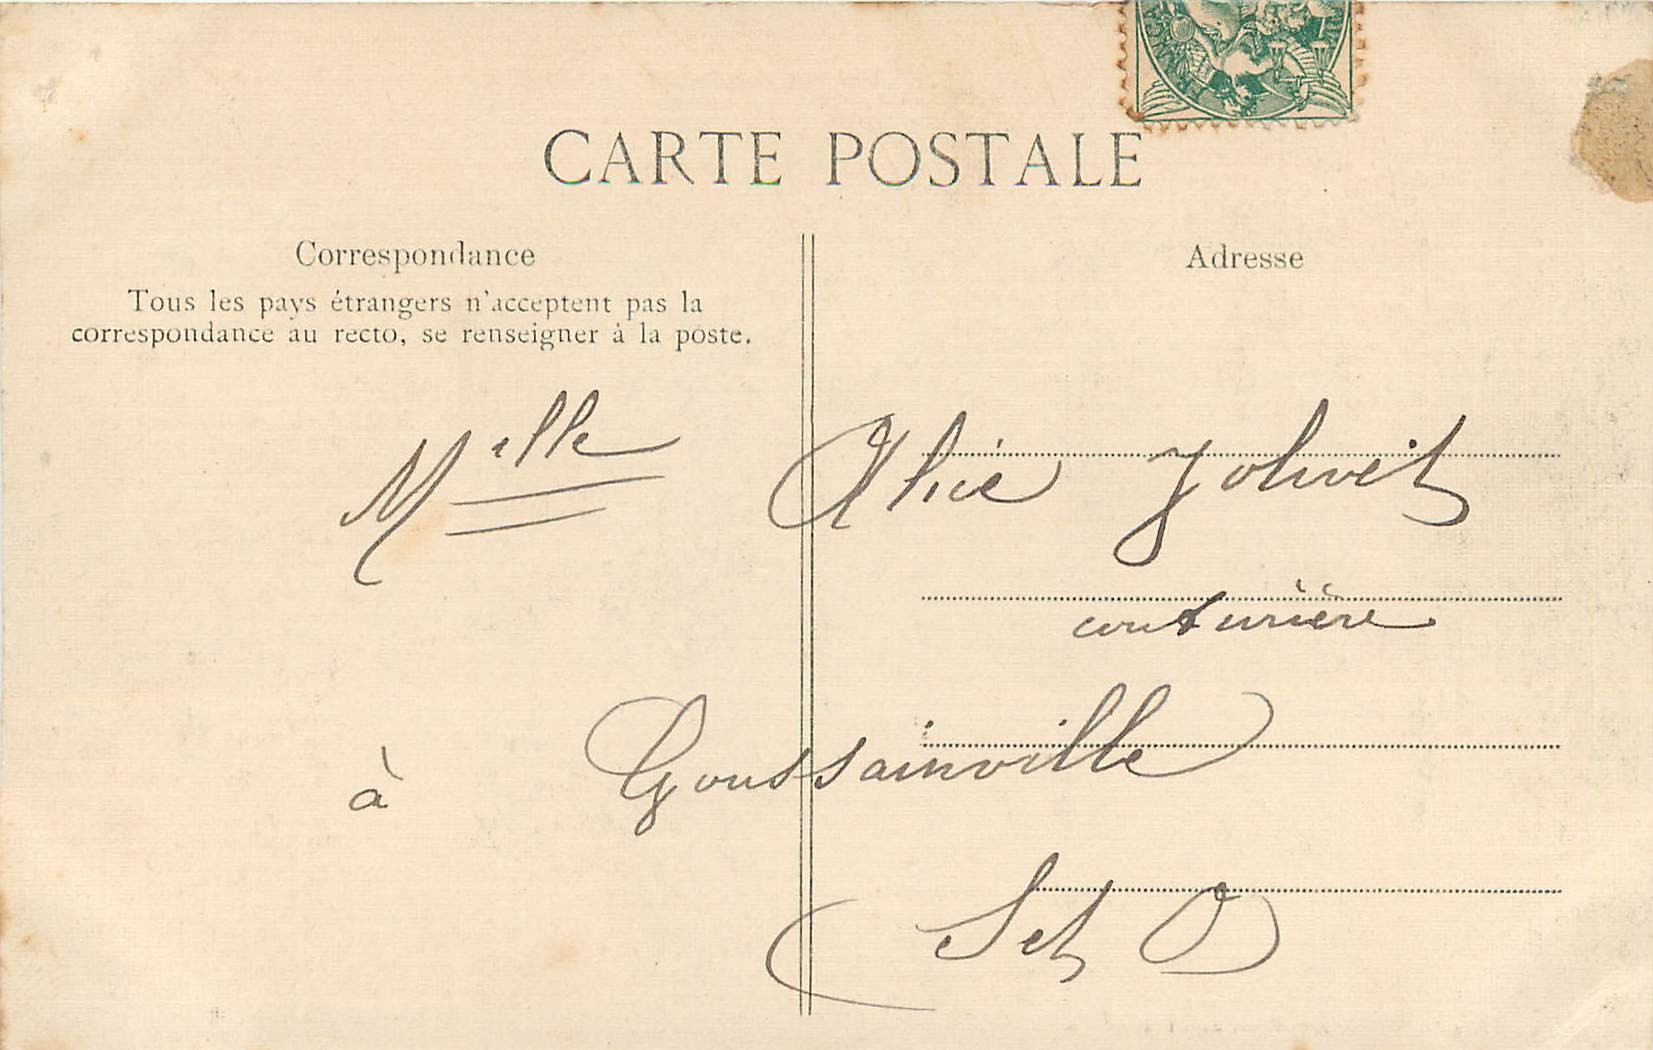 CARTE POSTALE
Correspondance
Adresse
Tous les pays étrangers n'acceptent pas la
correspondance au recto, se renseigner à la poste.
Melle Alice Jolivet
couturière
à Goussainville
S et O